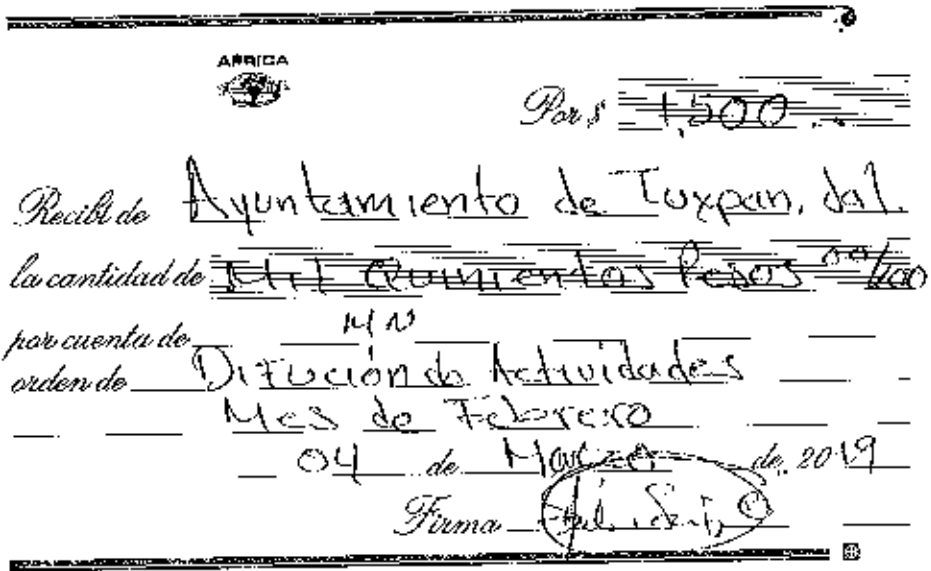 AFRICA
Por $ 1,500.
Recibí de Ayuntamiento de Tuxpan, Jal.
la cantidad de Mil Quinientos Pesos 00/100
por cuenta de M N
orden de Difución de Actividades
Mes de Febrero
04 de Marzo de 2019
Firma